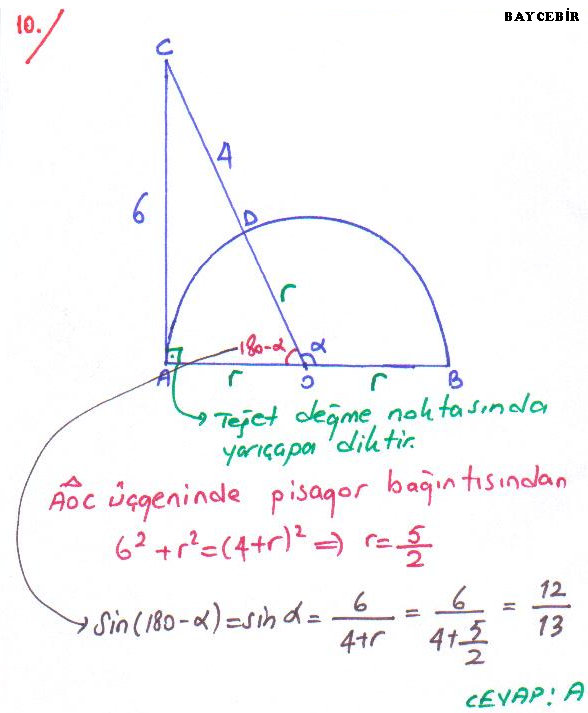 10.
BAYCEBİR
C
4
6
D
r
180-α α
A r O r B
Teğet değme noktasında
yarıçapa diktir.
AÔC üçgeninde pisagor bağıntısından
6² + r² = (4+r)² ⇒ r = 5/2
Sin(180-α) = sin α = 6/(4+r) = 6/(4+5/2) = 12/13
CEVAP: A